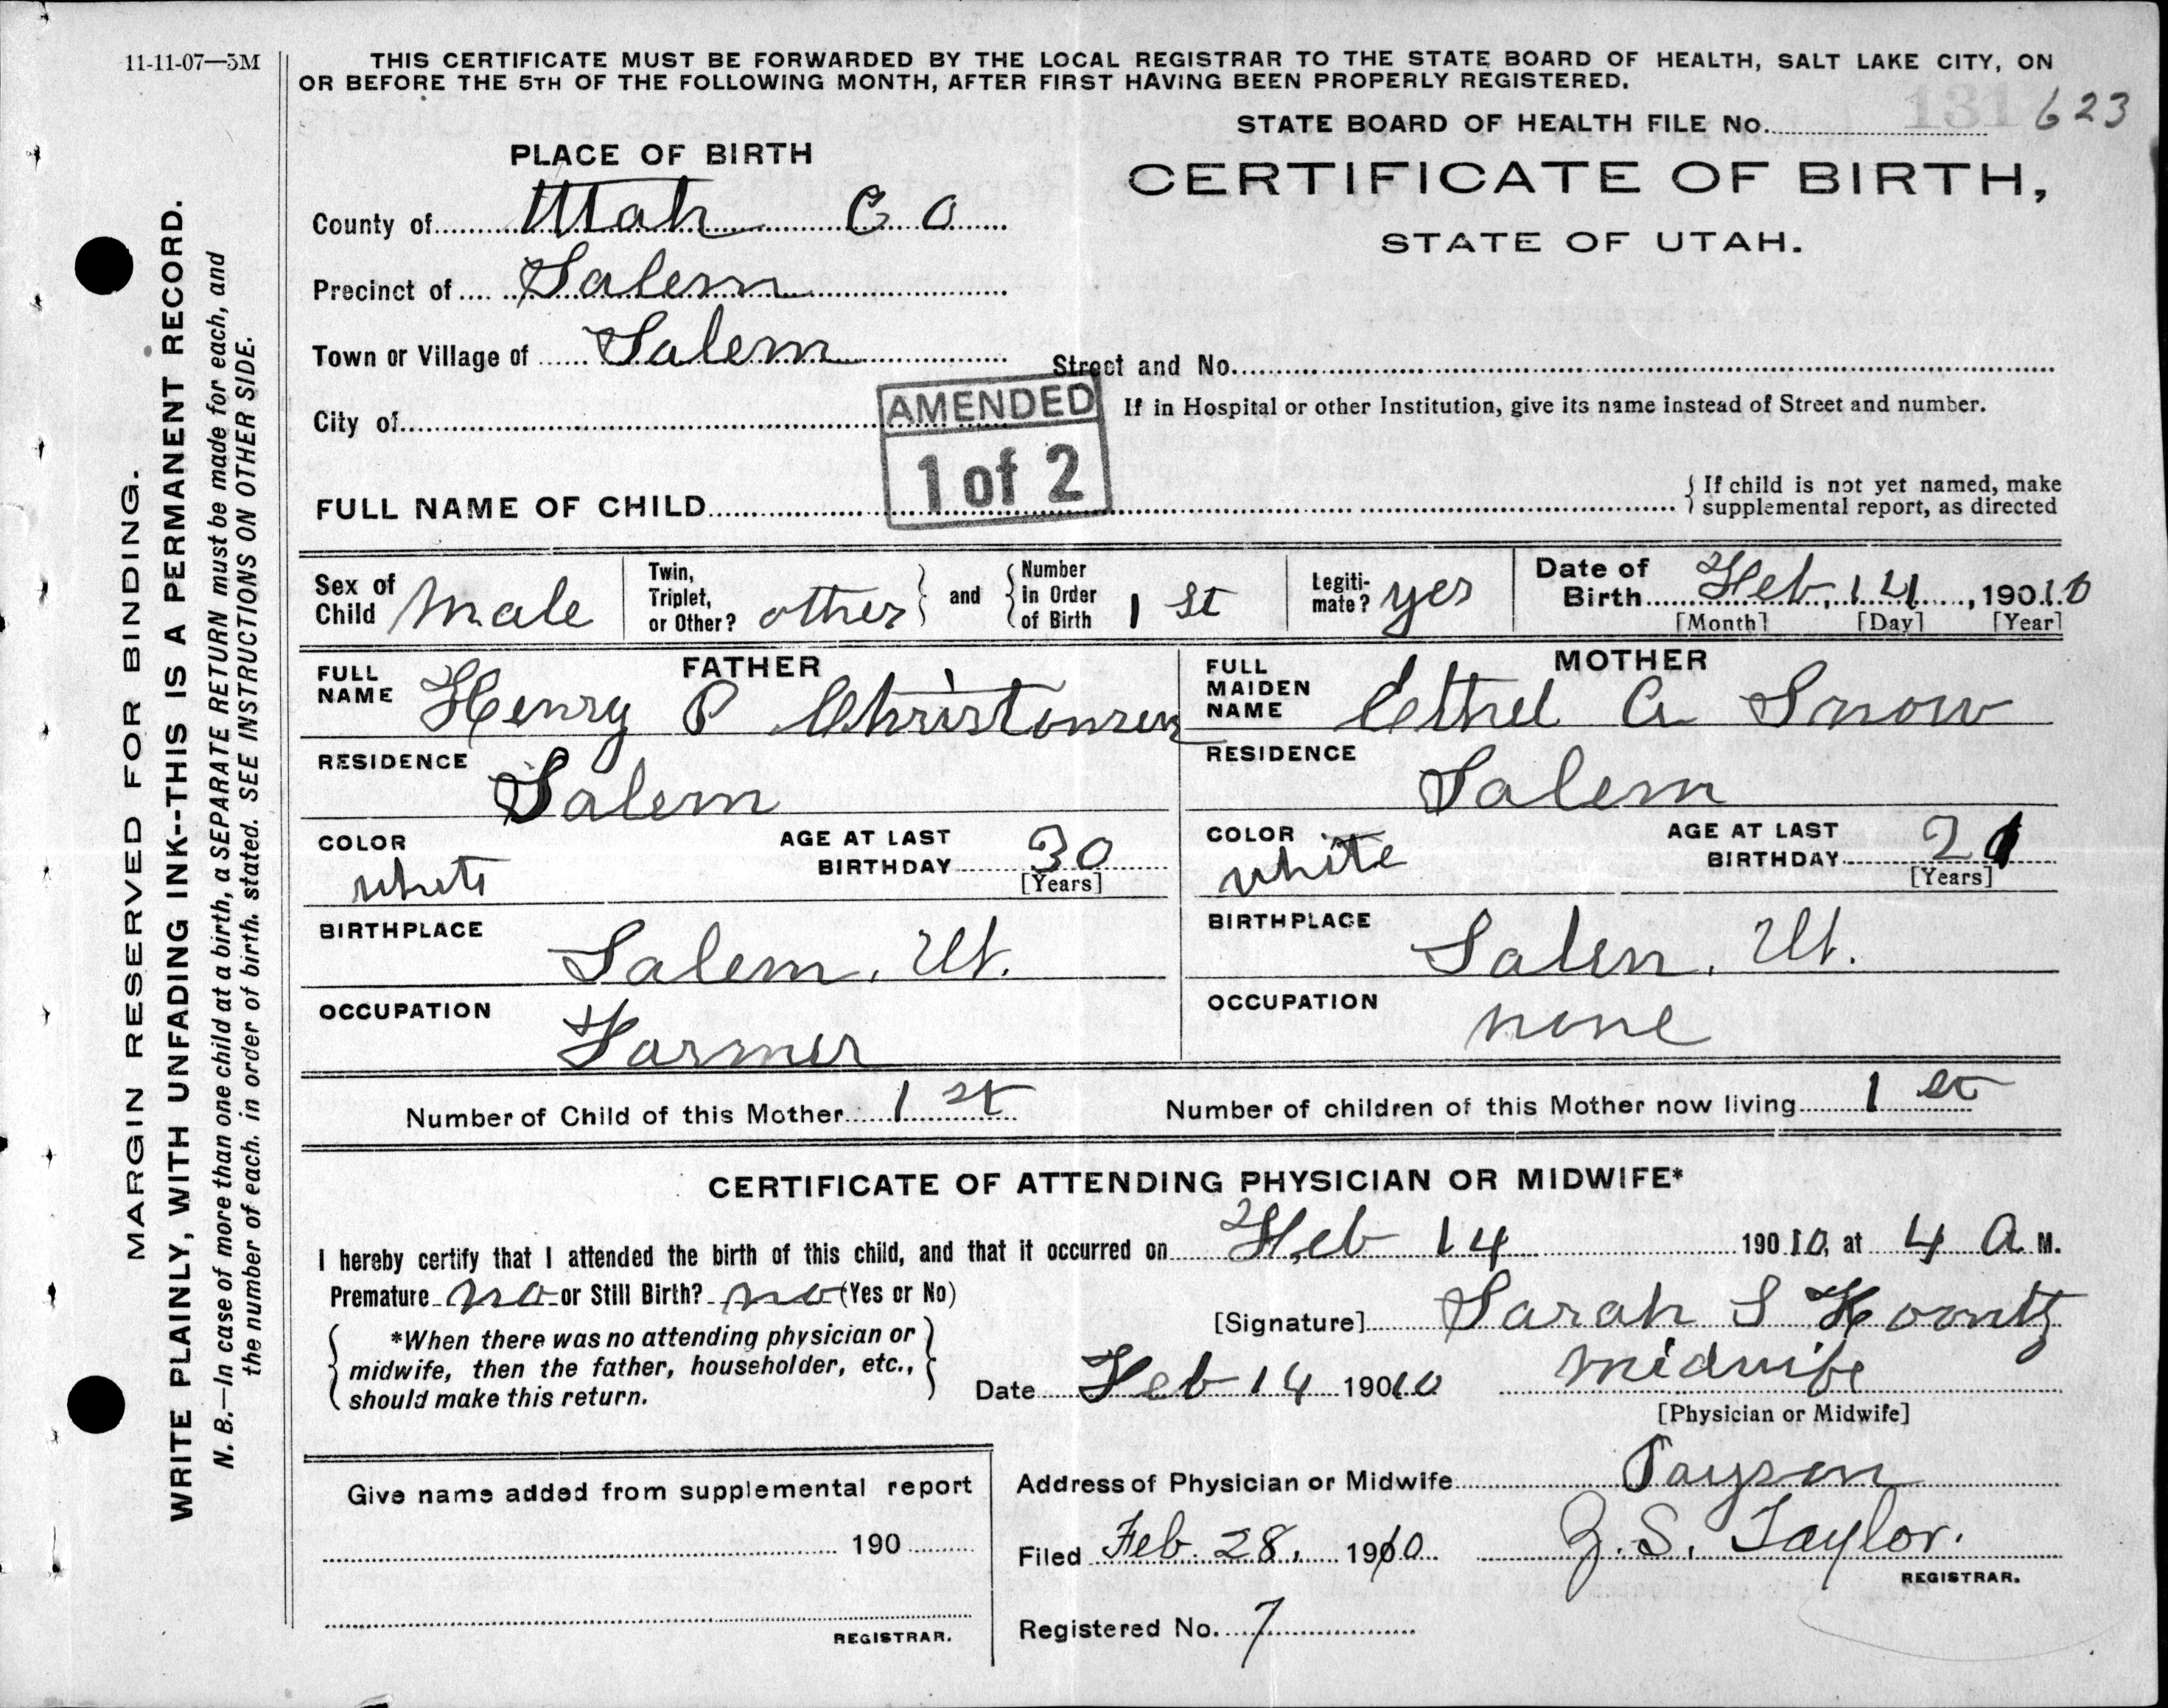 11-11-07—5M
THIS CERTIFICATE MUST BE FORWARDED BY THE LOCAL REGISTRAR TO THE STATE BOARD OF HEALTH, SALT LAKE CITY, ON
OR BEFORE THE 5TH OF THE FOLLOWING MONTH, AFTER FIRST HAVING BEEN PROPERLY REGISTERED.
STATE BOARD OF HEALTH FILE No. 131 623
PLACE OF BIRTH
CERTIFICATE OF BIRTH,
STATE OF UTAH.
County of Utah Co
Precinct of Salem
Town or Village of Salem
Street and No.
City of
If in Hospital or other Institution, give its name instead of Street and number.
AMENDED
1 of 2
FULL NAME OF CHILD
If child is not yet named, make
supplemental report, as directed
Sex of Child Male
Twin, Triplet, or Other? other and Number in Order of Birth 1 st
Legiti-mate? yes
Date of Birth Feb, 14, 19010
[Month] [Day] [Year]
FATHER
FULL NAME Henry P Christensen
RESIDENCE Salem
COLOR white
AGE AT LAST BIRTHDAY 30
[Years]
BIRTHPLACE Salem, Ut.
OCCUPATION Farmer
MOTHER
FULL MAIDEN NAME Ethel A Snow
RESIDENCE Salem
COLOR white
AGE AT LAST BIRTHDAY 21
[Years]
BIRTHPLACE Salen, Ut.
OCCUPATION none
Number of Child of this Mother 1 st
Number of children of this Mother now living 1 st
CERTIFICATE OF ATTENDING PHYSICIAN OR MIDWIFE*
I hereby certify that I attended the birth of this child, and that it occurred on Feb 14 19010, at 4 A M.
Premature no or Still Birth? no (Yes or No)
*When there was no attending physician or
midwife, then the father, householder, etc.,
should make this return.
[Signature] Sarah S Koontz
Date Feb 14 19010
Midwife
[Physician or Midwife]
Give name added from supplemental report
190
REGISTRAR.
Address of Physician or Midwife Payson
Filed Feb. 28, 1910 Z. S. Taylor.
REGISTRAR.
Registered No. 7
MARGIN RESERVED FOR BINDING.
WRITE PLAINLY, WITH UNFADING INK--THIS IS A PERMANENT RECORD.
N. B.—In case of more than one child at a birth, a SEPARATE RETURN must be made for each, and
the number of each. in order of birth. stated. SEE INSTRUCTIONS ON OTHER SIDE.